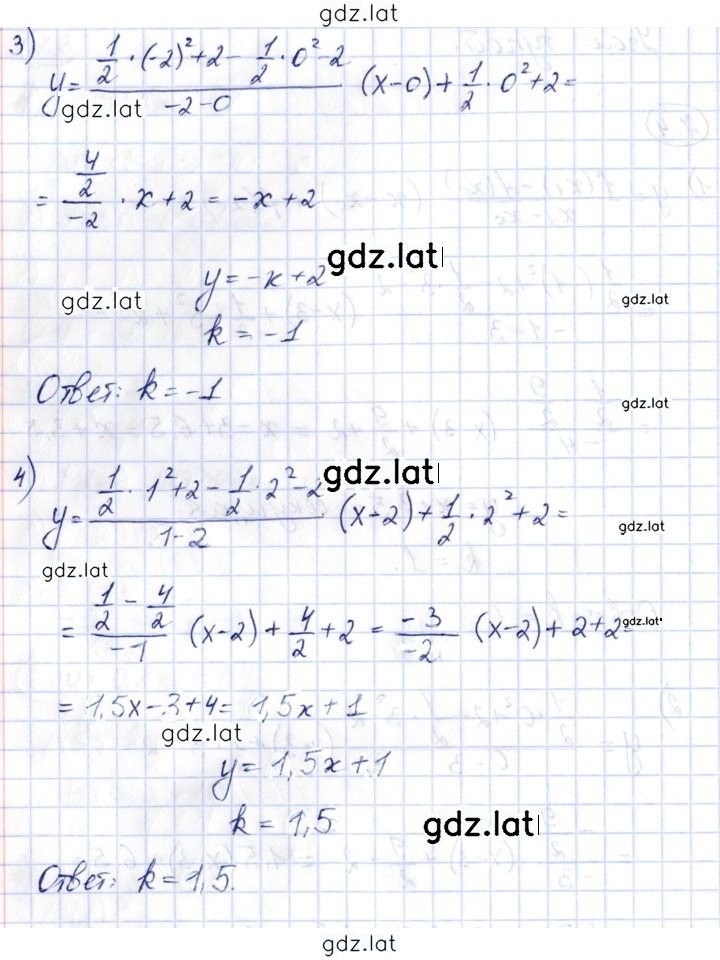 gdz.lat
3) y = (1/2 · (-2)² + 2 - 1/2 · 0² - 2)/(-2-0) (x-0) + 1/2 · 0² + 2 =
gdz.lat
= (4/2)/(-2) · x + 2 = -x + 2
gdz.lat
y = -x + 2
gdz.lat
gdz.lat
k = -1
Ответ: k = -1
gdz.lat
4) y = (1/2 · 1² + 2 - 1/2 · 2² - 2)/(1-2) (x-2) + 1/2 · 2² + 2 =
gdz.lat
gdz.lat
gdz.lat
= (1/2 - 4/2)/(-1) (x-2) + 4/2 + 2 = (-3)/(-2) (x-2) + 2 + 2 =
gdz.lat
= 1,5x - 3 + 4 = 1,5x + 1
gdz.lat
y = 1,5x + 1
k = 1,5
gdz.lat
Ответ: k = 1,5.
gdz.lat